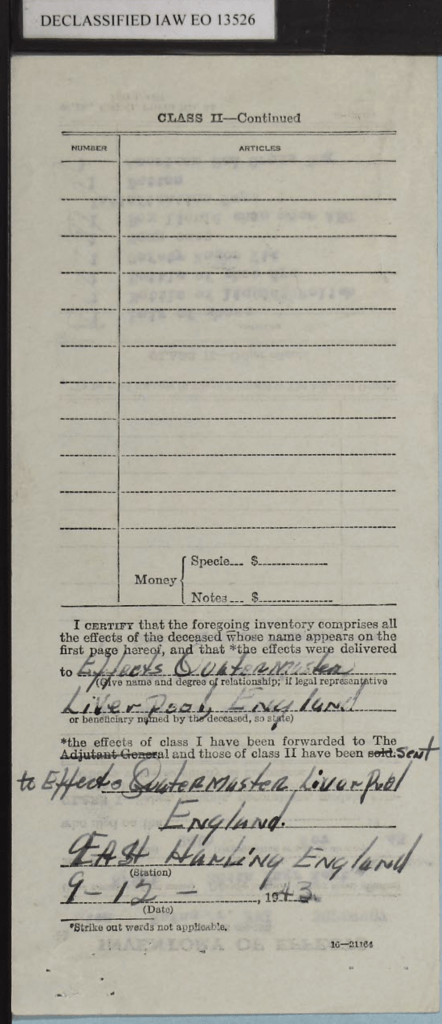 DECLASSIFIED IAW EO 13526
CLASS II—Continued
NUMBER ARTICLES
Money
Specie $
Notes $
I CERTIFY that the foregoing inventory comprises all
the effects of the deceased whose name appears on the
first page hereof, and that *the effects were delivered
to Effects Quatermaster
(Give name and degree of relationship; if legal representative
Liverpool, England
or beneficiary named by the deceased, so state)
*the effects of class I have been forwarded to The
Adjutant General and those of class II have been sold. sent
to Effects Quatermaster Liverpool
England.
East Harling England
(Station)
9-12-, 1943.
(Date)
*Strike out words not applicable.
16—21164
INVENTORY OF EFFECTS